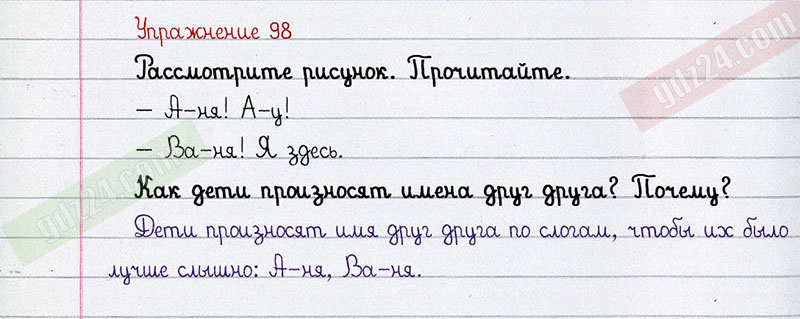 Упражнение 98
Рассмотрите рисунок. Прочитайте.
– А-ня! А-у!
– Ва-ня! Я здесь.
Как дети произносят имена друг друга? Почему?
Дети произносят имя друг друга по слогам, чтобы их было
лучше слышно: А-ня, Ва-ня.
gdz24.com
gdz24.com